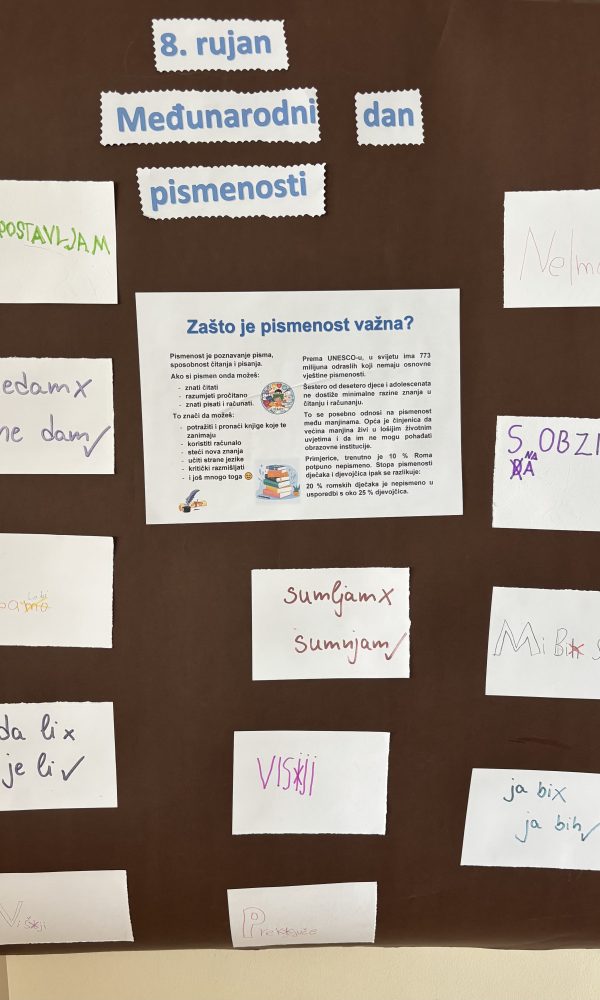 8. rujan
Međunarodni dan
pismenosti
POSTAVLJAM
Zašto je pismenost važna?
Pismenost je poznavanje pisma,
sposobnost čitanja i pisanja.
Ako si pismen onda možeš:
- znati čitati
- razumjeti pročitano
- znati pisati i računati.
To znači da možeš:
- potražiti i pronaći knjige koje te
zanimaju
- koristiti računalo
- steći nova znanja
- učiti strane jezike
- kritički razmišljati
- i još mnogo toga 😊
Prema UNESCO-u, u svijetu ima 773
milijuna odraslih koji nemaju osnovne
vještine pismenosti.
Šestero od desetero djece i adolescenata
ne dostiže minimalne razine znanja u
čitanju i računanju.
To se posebno odnosi na pismenost
među manjinama. Opća je činjenica da
većina manjina živi u lošijim životnim
uvjetima i da im ne mogu pohađati
obrazovne institucije.
Primjerice, trenutno je 10 % Roma
potpuno nepismeno. Stopa pismenosti
dječaka i djevojčica ipak se razlikuje:
20 % romskih dječaka je nepismeno u
usporedbi s oko 25 % djevojčica.
edam x
ne dam ✓
S OBZI
NA
DA
sumljam x
sumnjam ✓
Mi Bi
da li x
je li ✓
VISIJI
ja bi x
ja bih ✓